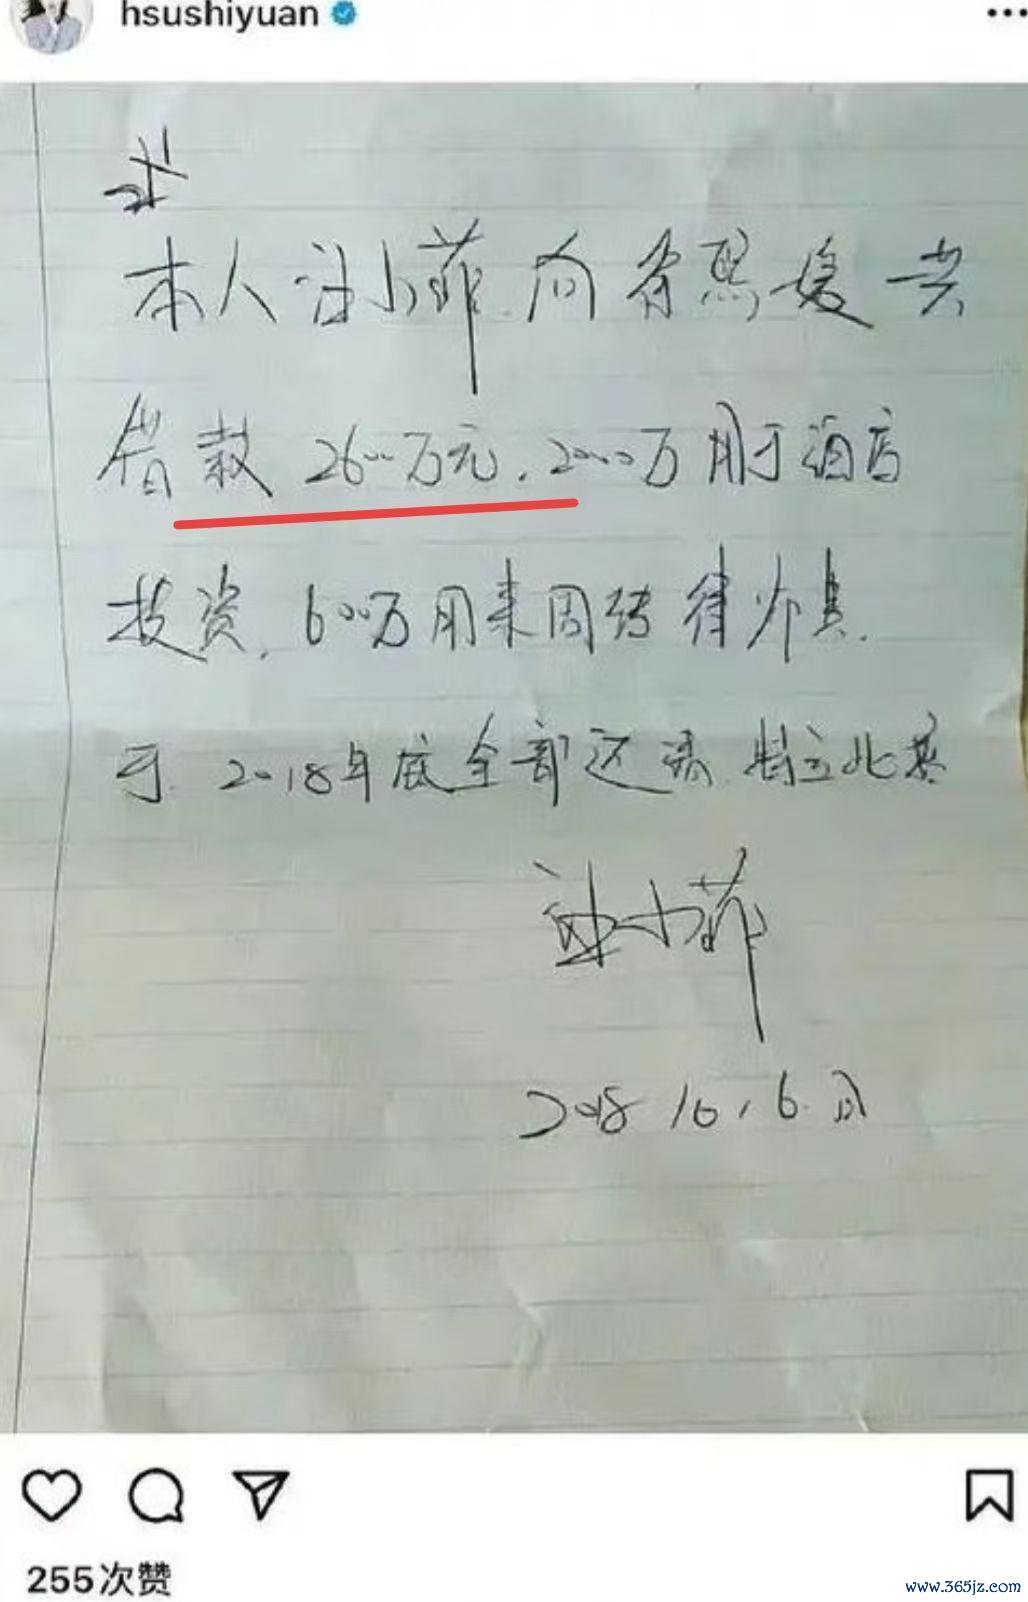 hsushiyuan
本人汪小菲.向徐熙媛共
借款2600万元.2000万用于酒店
投资.600万用来周转律师费.
于2018年底全部还清.特立此
汪小菲
2018 10.6.日
255次赞
www.365jz.com